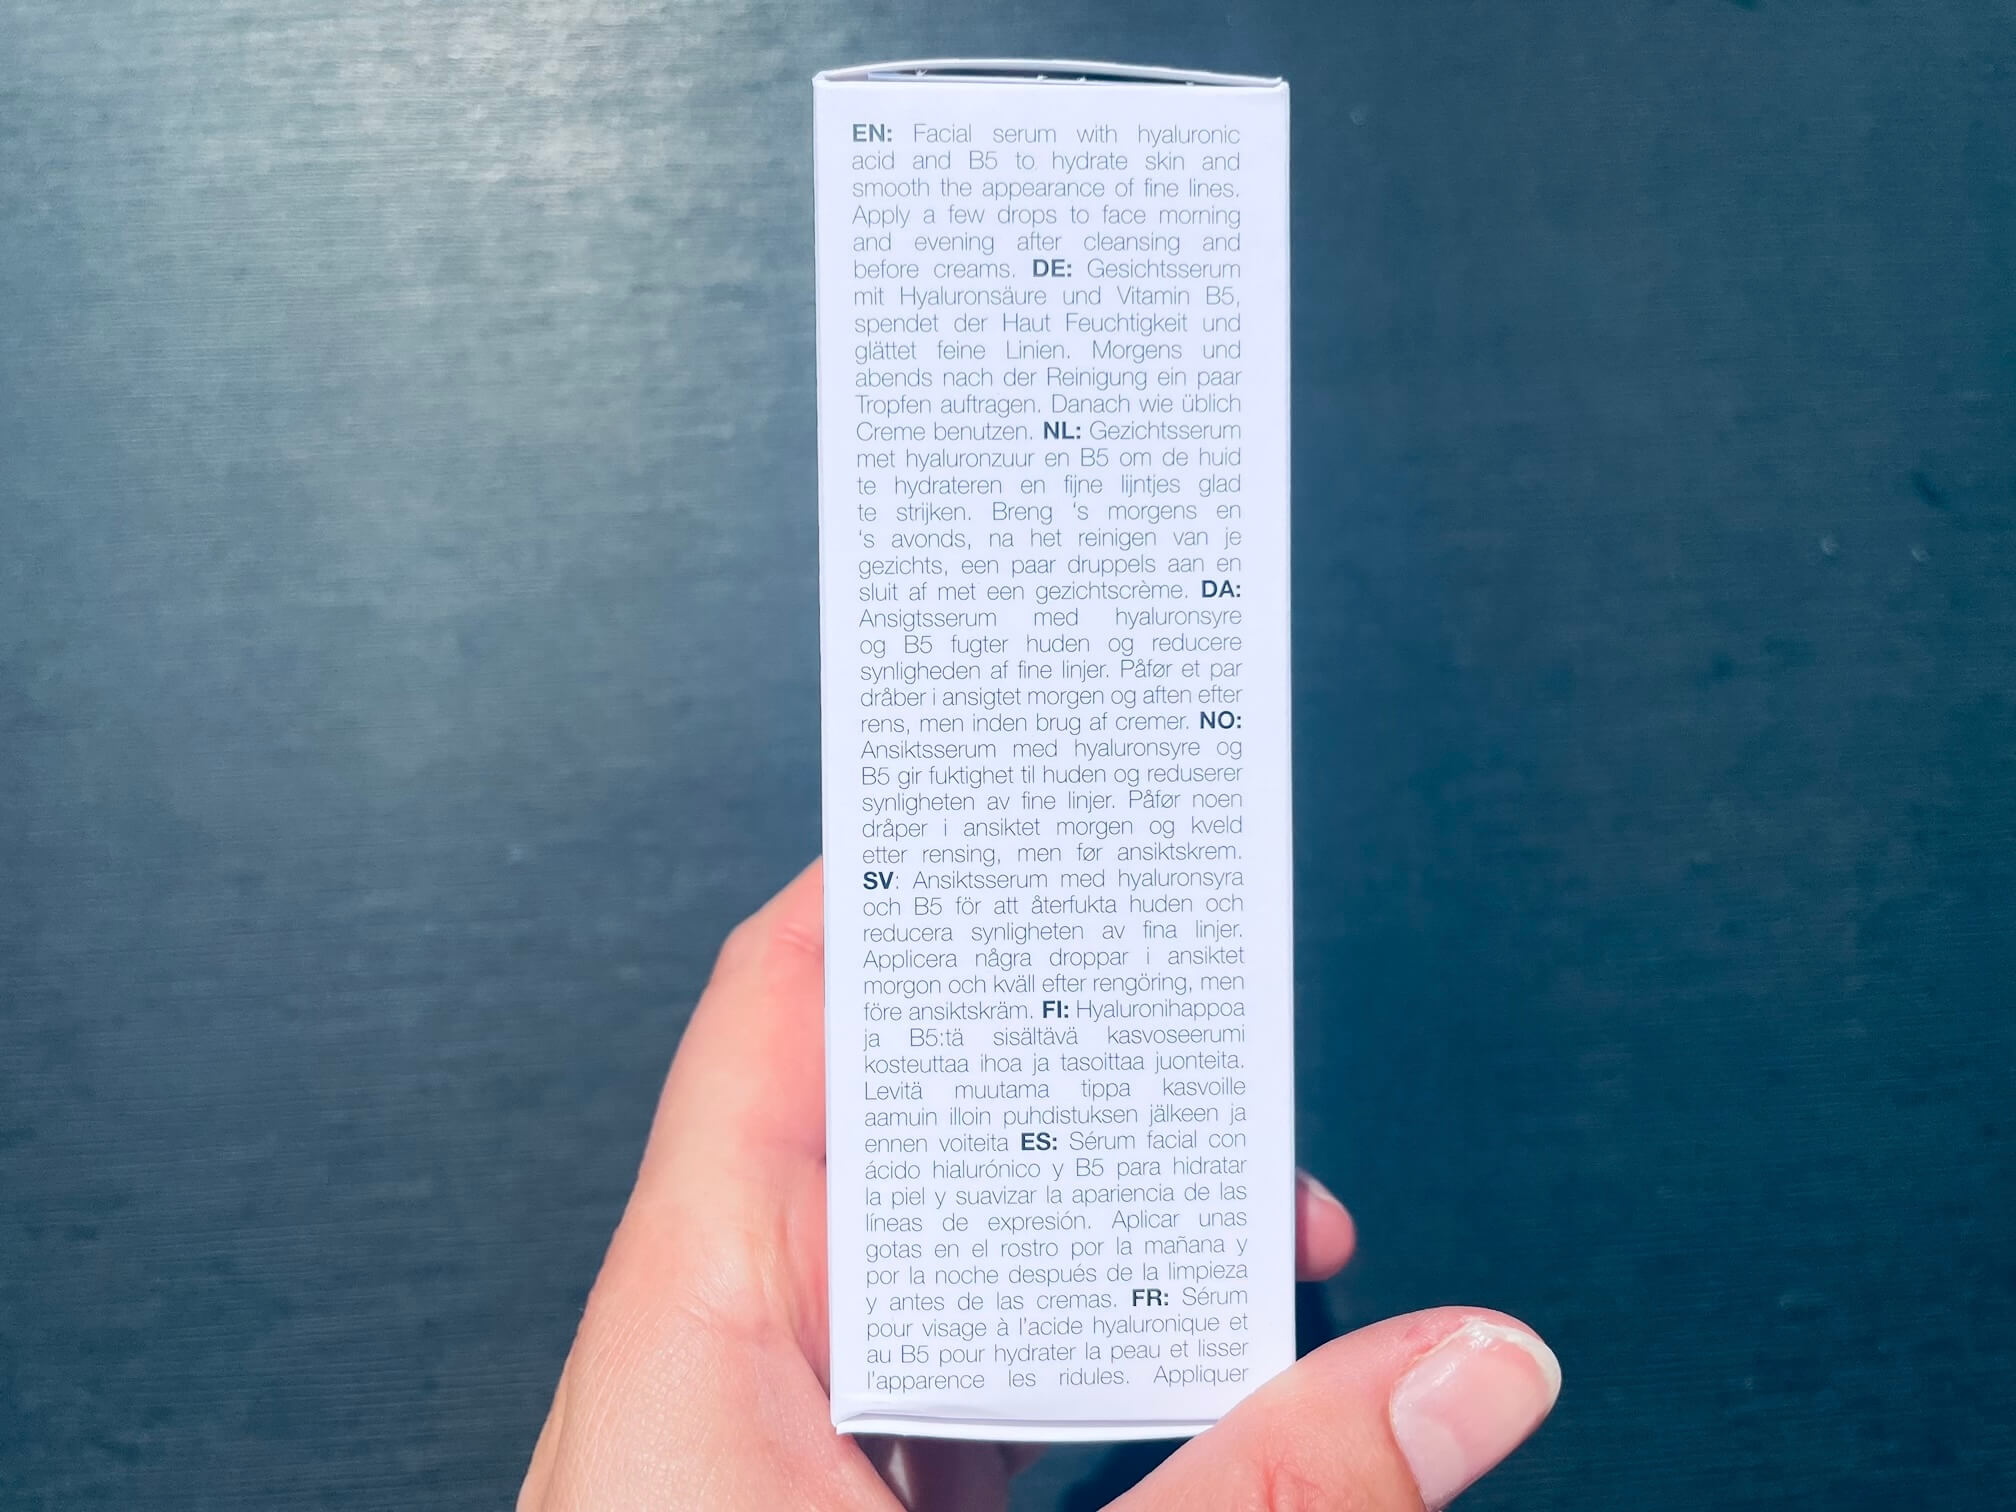 EN: Facial serum with hyaluronic
acid and B5 to hydrate skin and
smooth the appearance of fine lines.
Apply a few drops to face morning
and evening after cleansing and
before creams. DE: Gesichtsserum
mit Hyaluronsäure und Vitamin B5,
spendet der Haut Feuchtigkeit und
glättet feine Linien. Morgens und
abends nach der Reinigung ein paar
Tropfen auftragen. Danach wie üblich
Creme benutzen. NL: Gezichtsserum
met hyaluronzuur en B5 om de huid
te hydrateren en fijne lijntjes glad
te strijken. Breng 's morgens en
's avonds, na het reinigen van je
gezichts, een paar druppels aan en
sluit af met een gezichtscrème. DA:
Ansigtsserum med hyaluronsyre
og B5 fugter huden og reducere
synligheden af fine linjer. Påfør et par
dråber i ansigtet morgen og aften efter
rens, men inden brug af cremer. NO:
Ansiktsserum med hyaluronsyre og
B5 gir fuktighet til huden og reduserer
synligheten av fine linjer. Påfør noen
dråper i ansiktet morgen og kveld
etter rensing, men før ansiktskrem.
SV: Ansiktsserum med hyaluronsyra
och B5 för att återfukta huden och
reducera synligheten av fina linjer.
Applicera några droppar i ansiktet
morgon och kväll efter rengöring, men
före ansiktskräm. FI: Hyaluronihappoa
ja B5:tä sisältävä kasvoseerumi
kosteuttaa ihoa ja tasoittaa juonteita.
Levitä muutama tippa kasvoille
aamuin illoin puhdistuksen jälkeen ja
ennen voiteita ES: Sérum facial con
ácido hialurónico y B5 para hidratar
la piel y suavizar la apariencia de las
líneas de expresión. Aplicar unas
gotas en el rostro por la mañana y
por la noche después de la limpieza
y antes de las cremas. FR: Sérum
pour visage à l'acide hyaluronique et
au B5 pour hydrater la peau et lisser
l'apparence les ridules. Appliquer